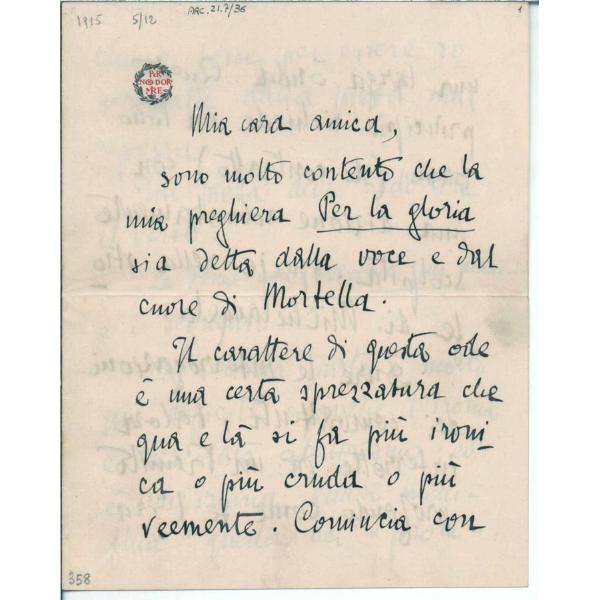 1915 5/12 ARC. 21.7/36 1
PER
NON DOR
MIRE
Mia cara amica,
sono molto contento che la
mia preghiera Per la gloria
sia detta dalla voce e dal
cuore di Mortella.
Il carattere di questa ode
è una certa sprezzatura che
qua e là si fa più ironi
ca o più cruda o più
veemente. Comincia con
358